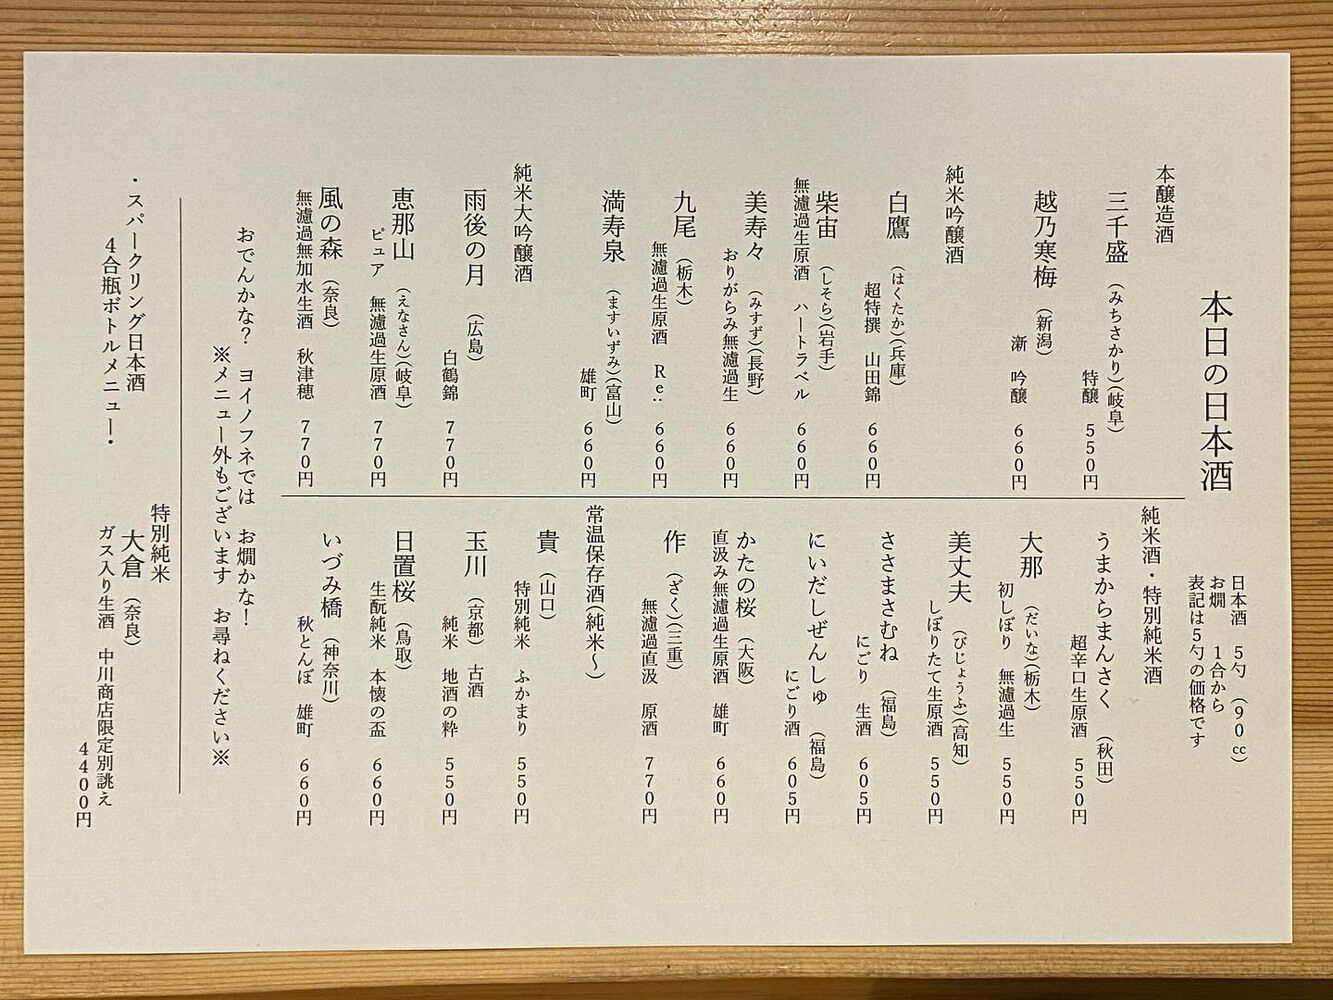 本日の日本酒
日本酒 5勺 (90cc)
お燗 1合から
表記は5勺の価格です
本醸造酒
三千盛 (みちさかり)(岐阜)
特醸 550円
越乃寒梅 (新潟)
漸 吟醸 660円
純米吟醸酒
白鷹 (はくたか)(兵庫)
超特撰 山田錦 660円
柴宙 (しそら)(岩手)
無濾過生原酒 ハートラベル 660円
美寿々 (みすず)(長野)
おりがらみ無濾過生 660円
九尾 (栃木)
無濾過生原酒 Re: 660円
満寿泉 (ますいずみ)(富山)
雄町 660円
純米大吟醸酒
雨後の月 (広島)
白鶴錦 770円
恵那山 (えなさん)(岐阜)
ピュア 無濾過生原酒 770円
風の森 (奈良)
無濾過無加水生酒 秋津穂 770円
純米酒・特別純米酒
うまからまんさく (秋田)
超辛口生原酒 550円
大那 (だいな)(栃木)
初しぼり 無濾過生 550円
美丈夫 (びじょうふ)(高知)
しぼりたて生原酒 550円
ささまさむね (福島)
にごり 生酒 605円
にいだしぜんしゅ (福島)
にごり酒 605円
かたの桜 (大阪)
直汲み無濾過生原酒 雄町 660円
作 (ざく)(三重)
無濾過直汲 原酒 770円
常温保存酒(純米〜)
貴 (山口)
特別純米 ふかまり 550円
玉川 (京都) 古酒
純米 地酒の粋 550円
日置桜 (鳥取)
生酛純米 本懐の盃 660円
いづみ橋 (神奈川)
秋とんぼ 雄町 660円
おでんかな? ヨイノフネでは お燗かな!
※メニュー外もございます お尋ねください※
・スパークリング日本酒
4合瓶ボトルメニュー・
特別純米
大倉 (奈良)
ガス入り生酒 中川商店限定別誂え
4400円